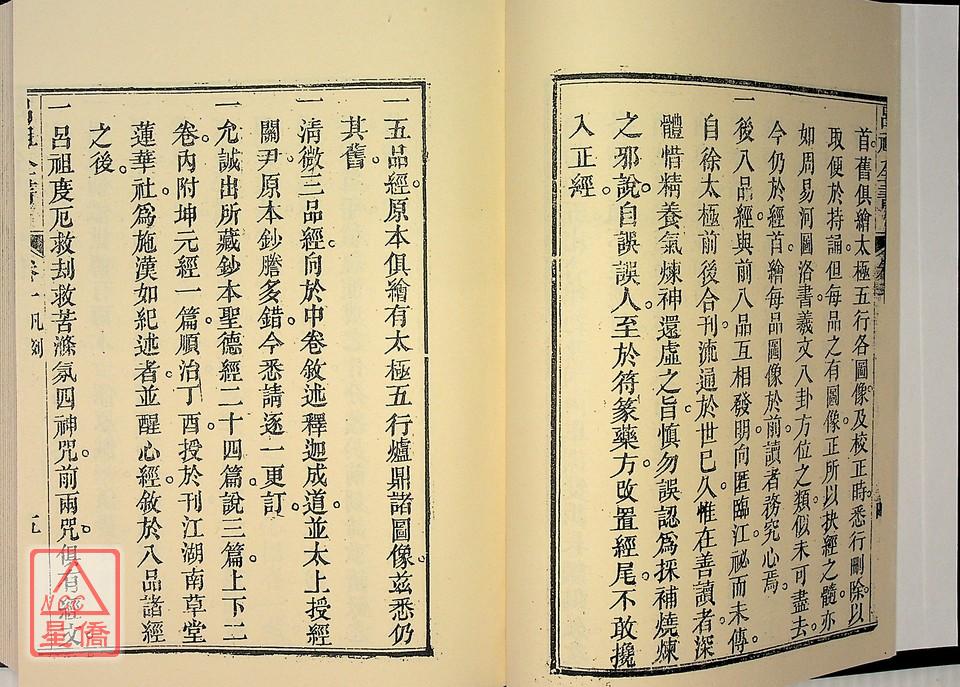 呂祖全書
首舊俱繪太極五行各圖像及校正時悉行刪除以
取便於持誦但每品之有圖像正所以抉經之髓亦
如周易河圖洛書羲文八卦方位之類似未可盡去
今仍於經首繪每品圖像於前讀者務究心焉
一後八品經與前八品互相發明向匿臨江祕而未傳
自徐太極前後合刊流通於世巳久惟在善讀者深
體惜精養氣煉神還虛之旨慎勿誤認爲採補燒煉
之邪說自誤誤人至於符篆藥方改置經尾不敢攙
入正經
一五品經原本俱繪有太極五行爐鼎諸圖像茲悉仍
其舊
一清微三品經向於中卷敘述釋迦成道並太上授經
關尹原本鈔謄多錯今悉請逐一更訂
一允誠出所藏鈔本聖德經二十四篇說三篇上下二
卷內附坤元經一篇順治丁酉授於刊江湖南草堂
蓮華社爲施漢如紀述者並醒心經敘於八品諸經
之後
一呂祖度厄救刦救苦滌氛四神咒前兩咒俱有經文
祖全書 卷一凡例
NCC
星僑